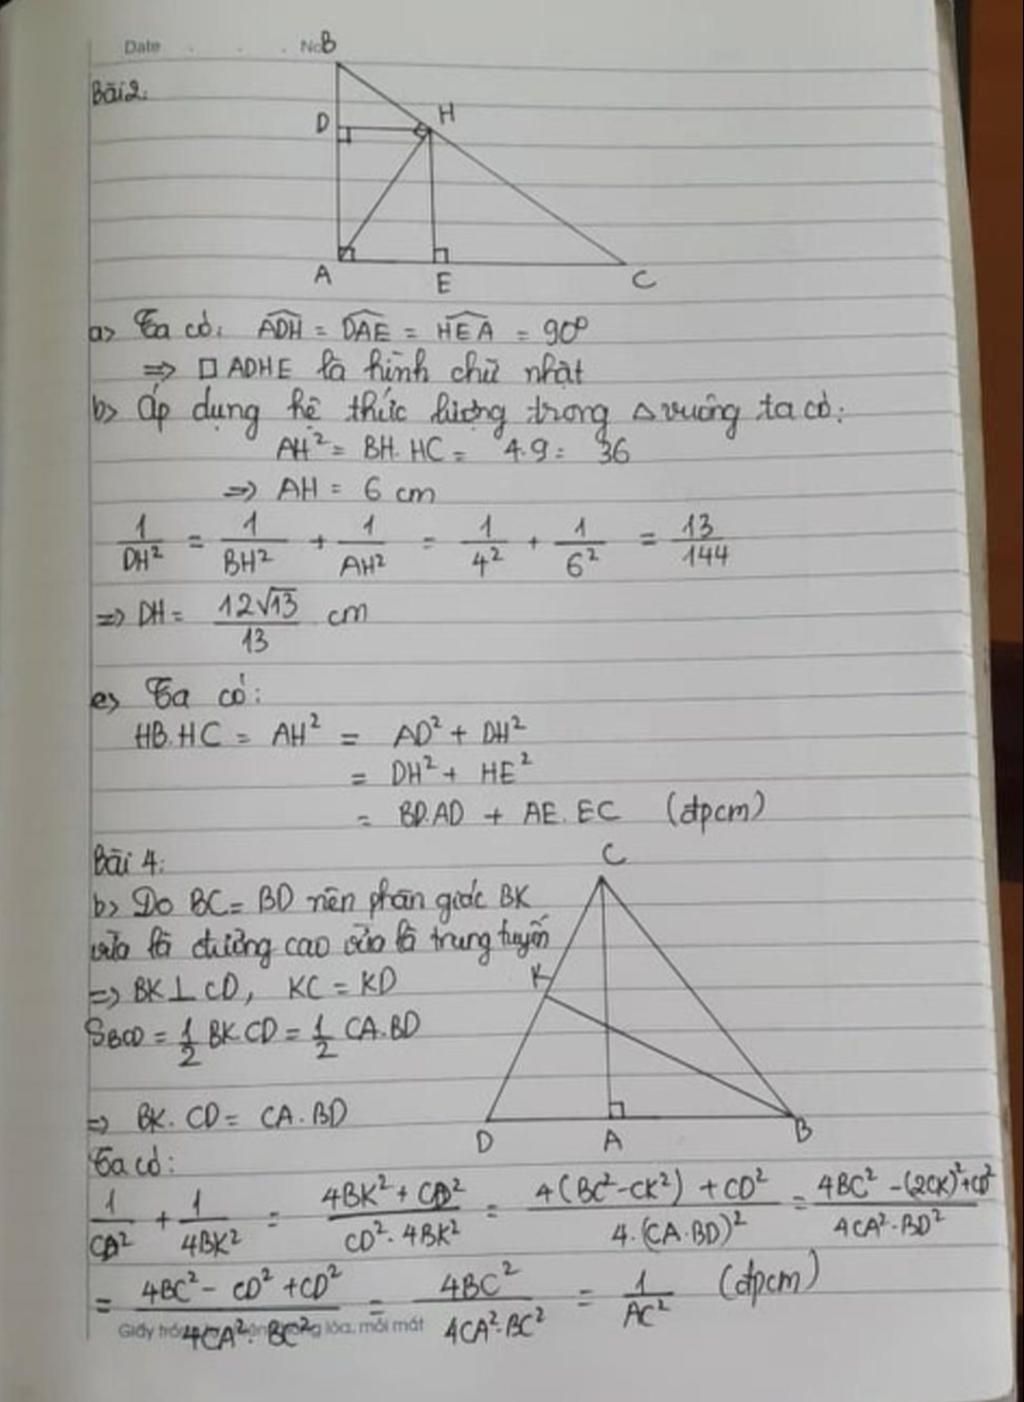 Date . . . No
Bài 2:
B
D
H
A
E
C
a> Ta có: ADH = DAE = HEA = 90°
=> □ ADHE là hình chữ nhật
b> Áp dụng hệ thức lượng trong Δ vuông ta có:
AH² = BH. HC = 4.9 = 36
=> AH = 6 cm
1/DH² = 1/BH² + 1/AH² = 1/4² + 1/6² = 13/144
=> DH = 12√13/13 cm
c> Ta có:
HB.HC = AH² = AD² + DH²
= DH² + HE²
= BD.AD + AE.EC (đpcm)
Bài 4:
C
b> Do BC = BD nên phân giác BK
vừa là đường cao vừa là trung tuyến
K
=> BK ⊥ CD, KC = KD
S_BCD = 1/2 BK.CD = 1/2 CA.BD
=> BK. CD = CA.BD
D
A
B
Ta có:
1/CD² + 1/4BK² = (4BK² + CD²)/(CD². 4BK²) = (4(BC² - CK²) + CD²)/(4.(CA.BD)²) = (4BC² - (2CK)² + CD²)/(4CA².BD²)
= (4BC² - CD² + CD²)/(4CA². BC²) = 4BC²/(4CA².BC²) = 1/AC² (đpcm)